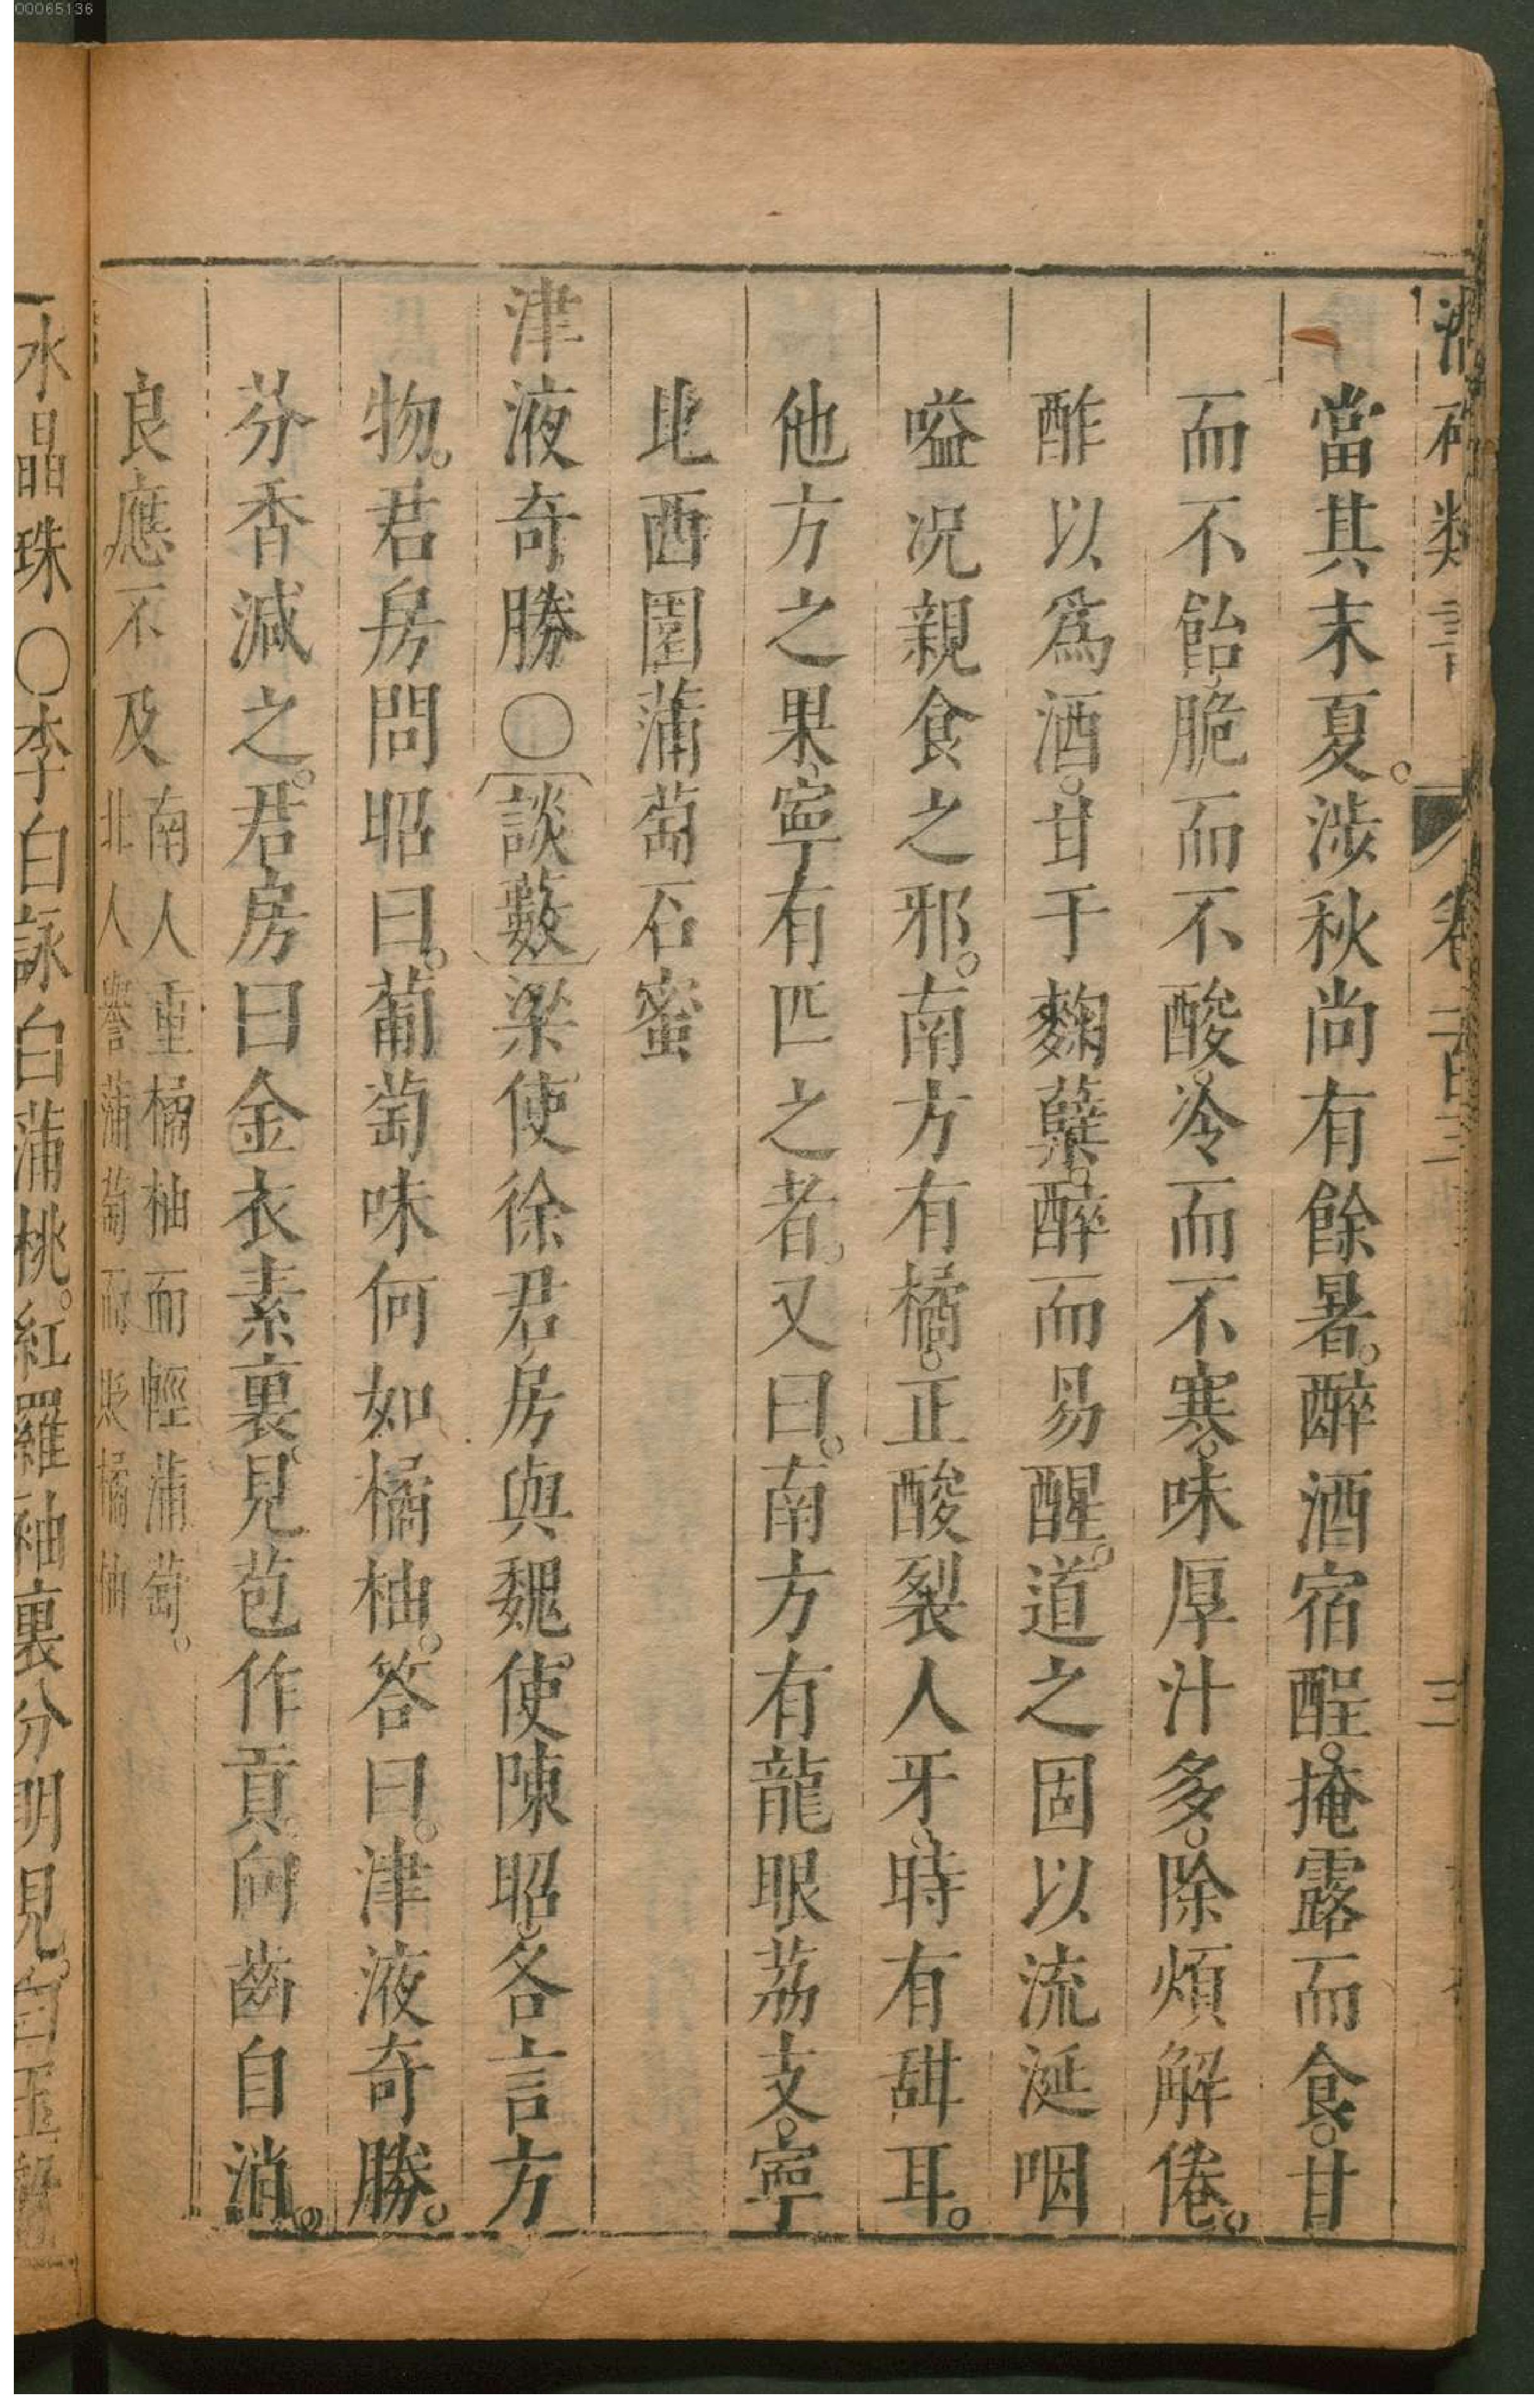 潛確類書 卷一百三 三
當其末夏。涉秋尚有餘暑。醉酒宿酲。掩露而食。甘
而不飴。脆而不酸。冷而不寒。味厚汁多。除煩解倦。
酢以爲酒。甘于麴糵。醉而易醒。道之固以流涎咽
嗌况親食之邪。南方有橘。正酸裂人牙。時有甜耳。
他方之果。寧有匹之者。又曰。南方有龍眼荔支。寧
比西園蒲萄石蜜
津液奇勝〇談藪梁使徐君房與魏使陳昭。各言方
物。君房問昭曰。葡萄味何如橘柚。答曰。津液奇勝。
芬香減之。君房曰金衣素裏。見苞作貢。向齒自消。
良應不及
南人重橘柚而輕蒲萄。
北人譽蒲萄而貶橘柚
水晶珠〇李白詠白蒲桃。紅羅袖裏分明見。白玉盤
00065136